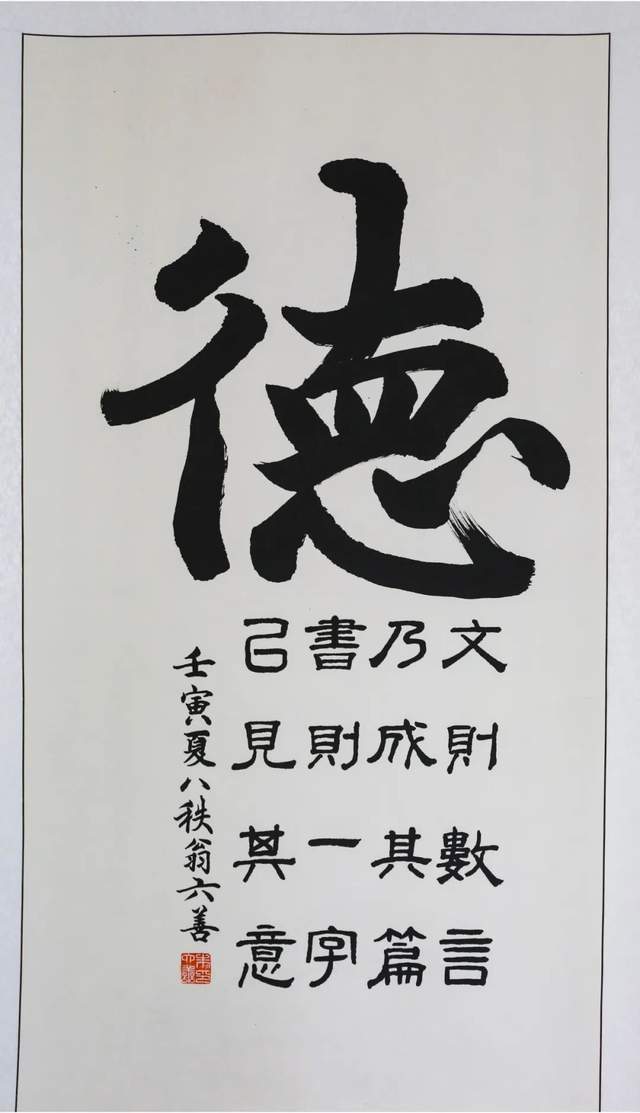 德
文則數言
乃成其篇
書則一字
己見其意
壬寅夏八秩翁六善